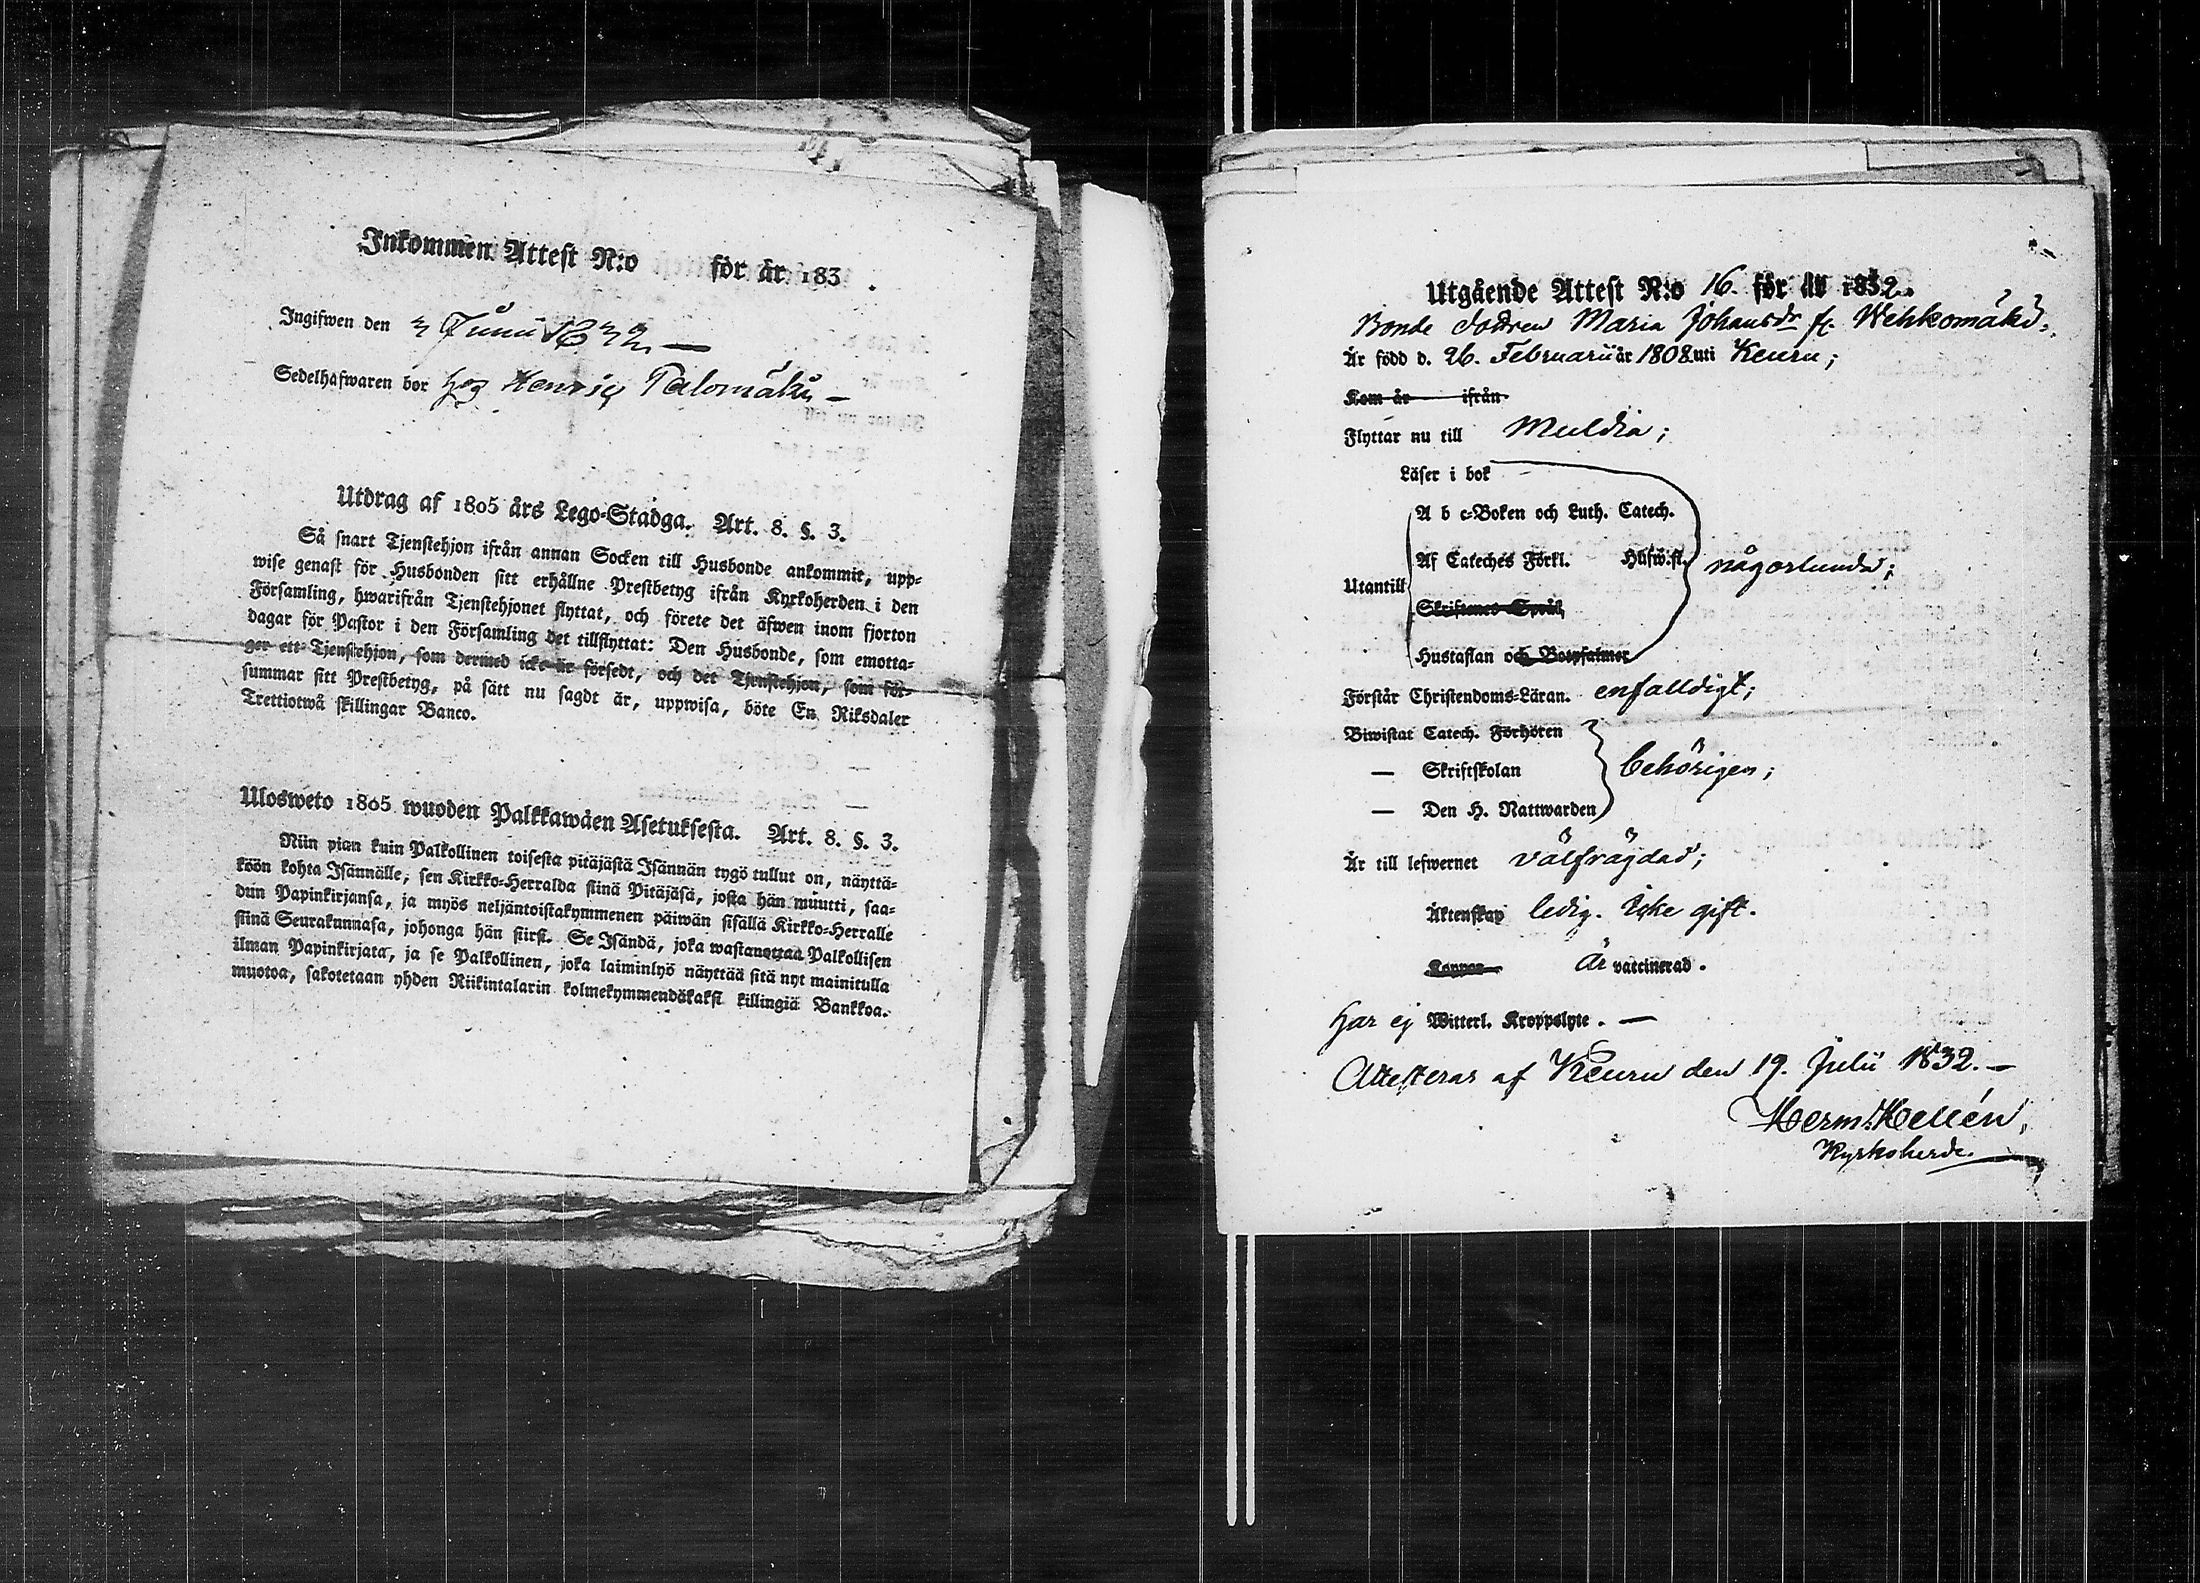 Inkommen Attest N:o för år 183 .
Ingifwen den 3 Junii 1832. —
Sedelhafwaren bor hos Henric Palomäki —
Utdrag af 1805 års Lego-Stadga. Art. 8. §. 3.
Så snart Tjenstehjon ifrån annan Socken till Husbonde ankommit, upp-
wise genast för Husbonden sitt erhållne Prestbetyg ifrån Kyrkoherden i den
Församling, hwarifrån Tjenstehjonet flyttat, och förete det äfwen inom fjorton
dagar för Pastor i den Församling det tillflyttat: Den Husbonde, som emotta-
ger ett Tjenstehjon, som dermed icke är försedt, och det Tjenstehjon, som för-
summar sitt Prestbetyg, på sätt nu sagdt är, uppwisa, böte En Riksdaler
Trettiotwå skillingar Banco.
Ulosweto 1805 wuoden Palkkawäen Asetuksesta. Art. 8. §. 3.
Niin pian kuin Palkollinen toisesta pitäjästä Isännän tygö tullut on, näyttä-
köön kohta Isännälle, sen Kirkko-Herralda siinä Pitäjäsä, josta hän muutti, saa-
dun Papinkirjansa, ja myös neljäntoistakymmenen päiwän sisällä Kirkko-Herralle
siinä Seurakunnasa, johonga hän siirsi. Se Isändä, joka wastanottaa Palkollisen
ilman Papinkirjata, ja se Palkollinen, joka laiminlyö näyttää sitä nyt mainitulla
muotoa, sakotetaan yhden Riikintalarin kolmekymmendäkaksi killingiä Bankkoa.
Utgående Attest N:o 16. för år 1832.
Bonde dottren Maria Johansdr fr. Wehkomäki.
Är född d. 26. Februarii år 1808 uti Keuru;
Kom år ifrån
Flyttar nu till Muldia;
Läser i bok
A b c-Boken och Luth. Catech.
Af Cateches Förkl. Hüfw.st. någorlunda;
Utantill
Skriftenes Språk
Hustaflan och Botpsalmer
Förstår Christendoms-Läran. enfalldigt;
Biwistat Catech. Förhören
— Skriftskolan behörigen;
— Den H. Nattwarden
Är till lefwernet välfrägdad;
Äktenskap ledig. Icke gift.
Koppor Är vaccinerad.
Har ej Witterl. Kroppslyte. —
Attesteras af Keuru den 19. Julii 1832. —
Herm: Hellén,
Kyrkoherde.